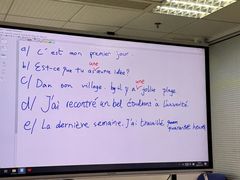 a/ C'est mon premier jour
b/ Est-ce que tu as une autre idée?
c/ Dan son village. il y a une jolie plage
d/ J'ai recontré un bel étudions à l'université
e/ La dernière semaine. J'ai travaillé quarante heures